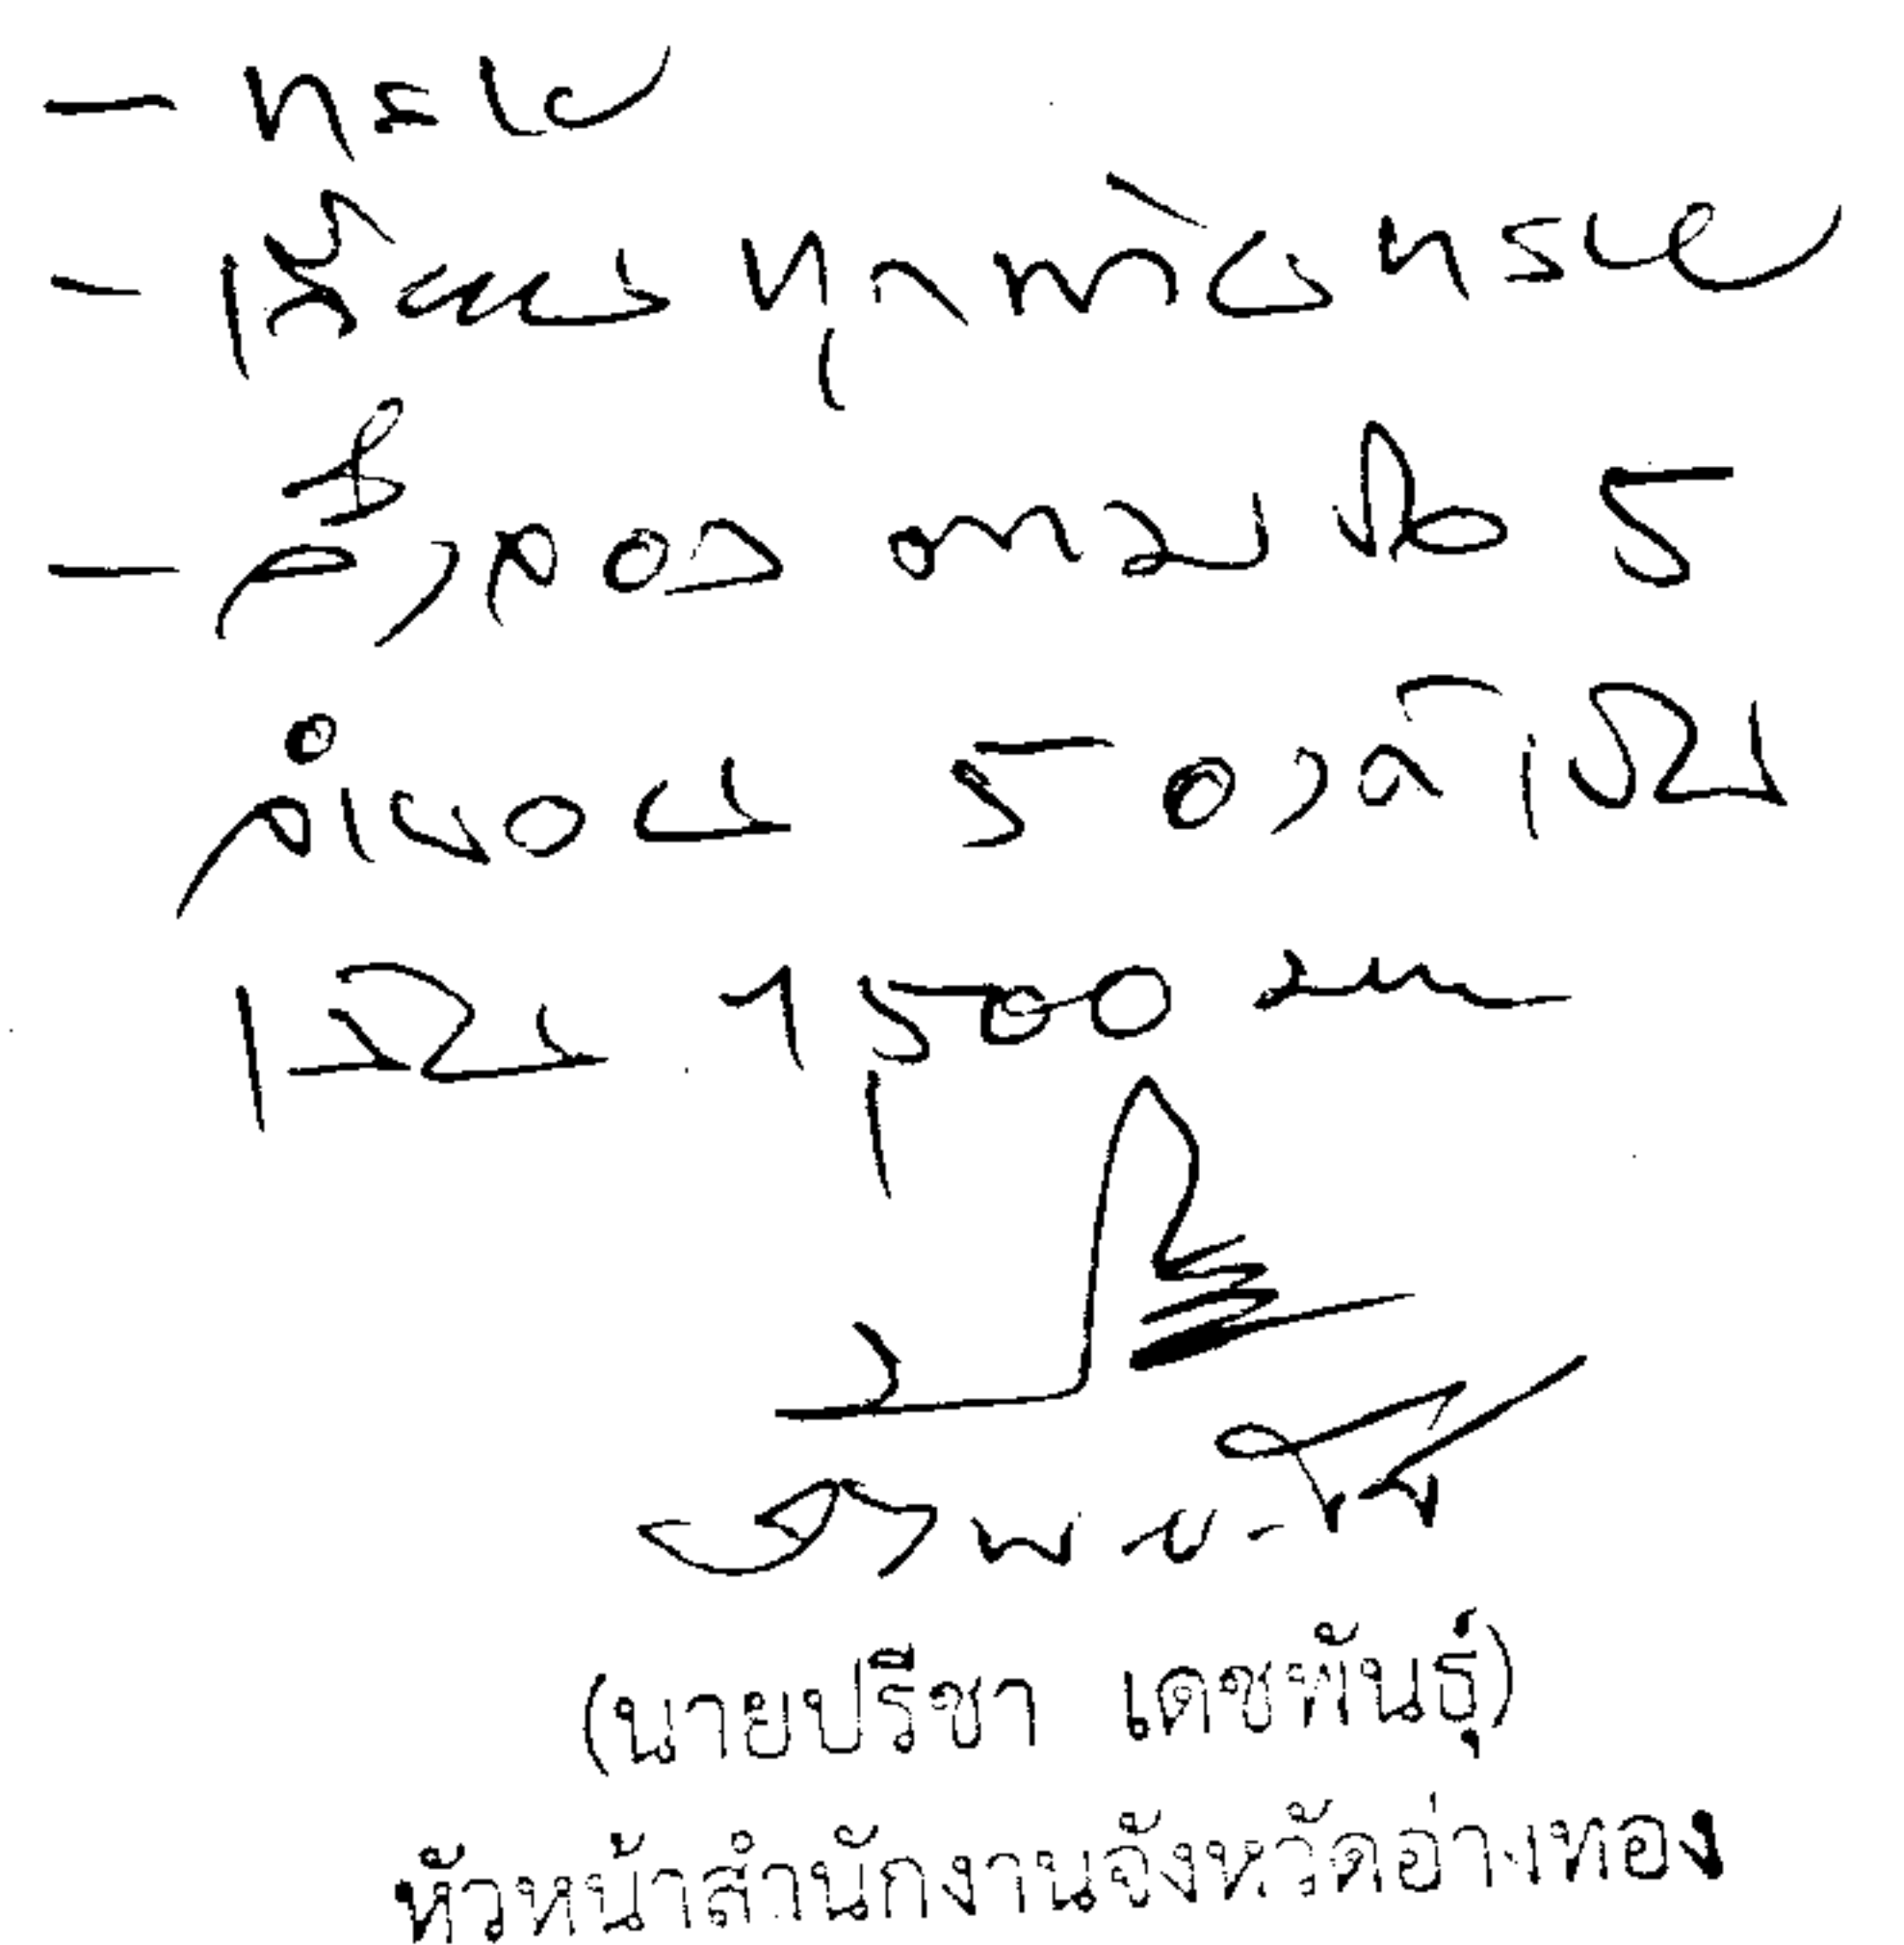 - ทราบ
- เรียน ทุกท่าน ทราบ
- สั่งจอง ตามข้อ 5
จำนวน 5 องค์ เป็น
เงิน 1,500 บาท
(นายปรีชา เดชพันธุ์)
หัวหน้าสำนักงานจังหวัดอ่างทอง